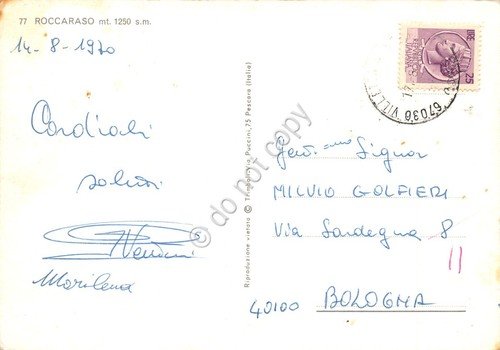 77 ROCCARASO mt. 1250 s.m.
14-8-1970
Cordiali
saluti
Marilena
Riproduzione vietata © Trimboli Via Puccini, 75 Pescara (Italia)
do not copy
LIRE 25
67030 VILLE
Gent.mo Signor
MILVIO GOLFIERI
Via Sardegna 8
11
40100 BOLOGNA